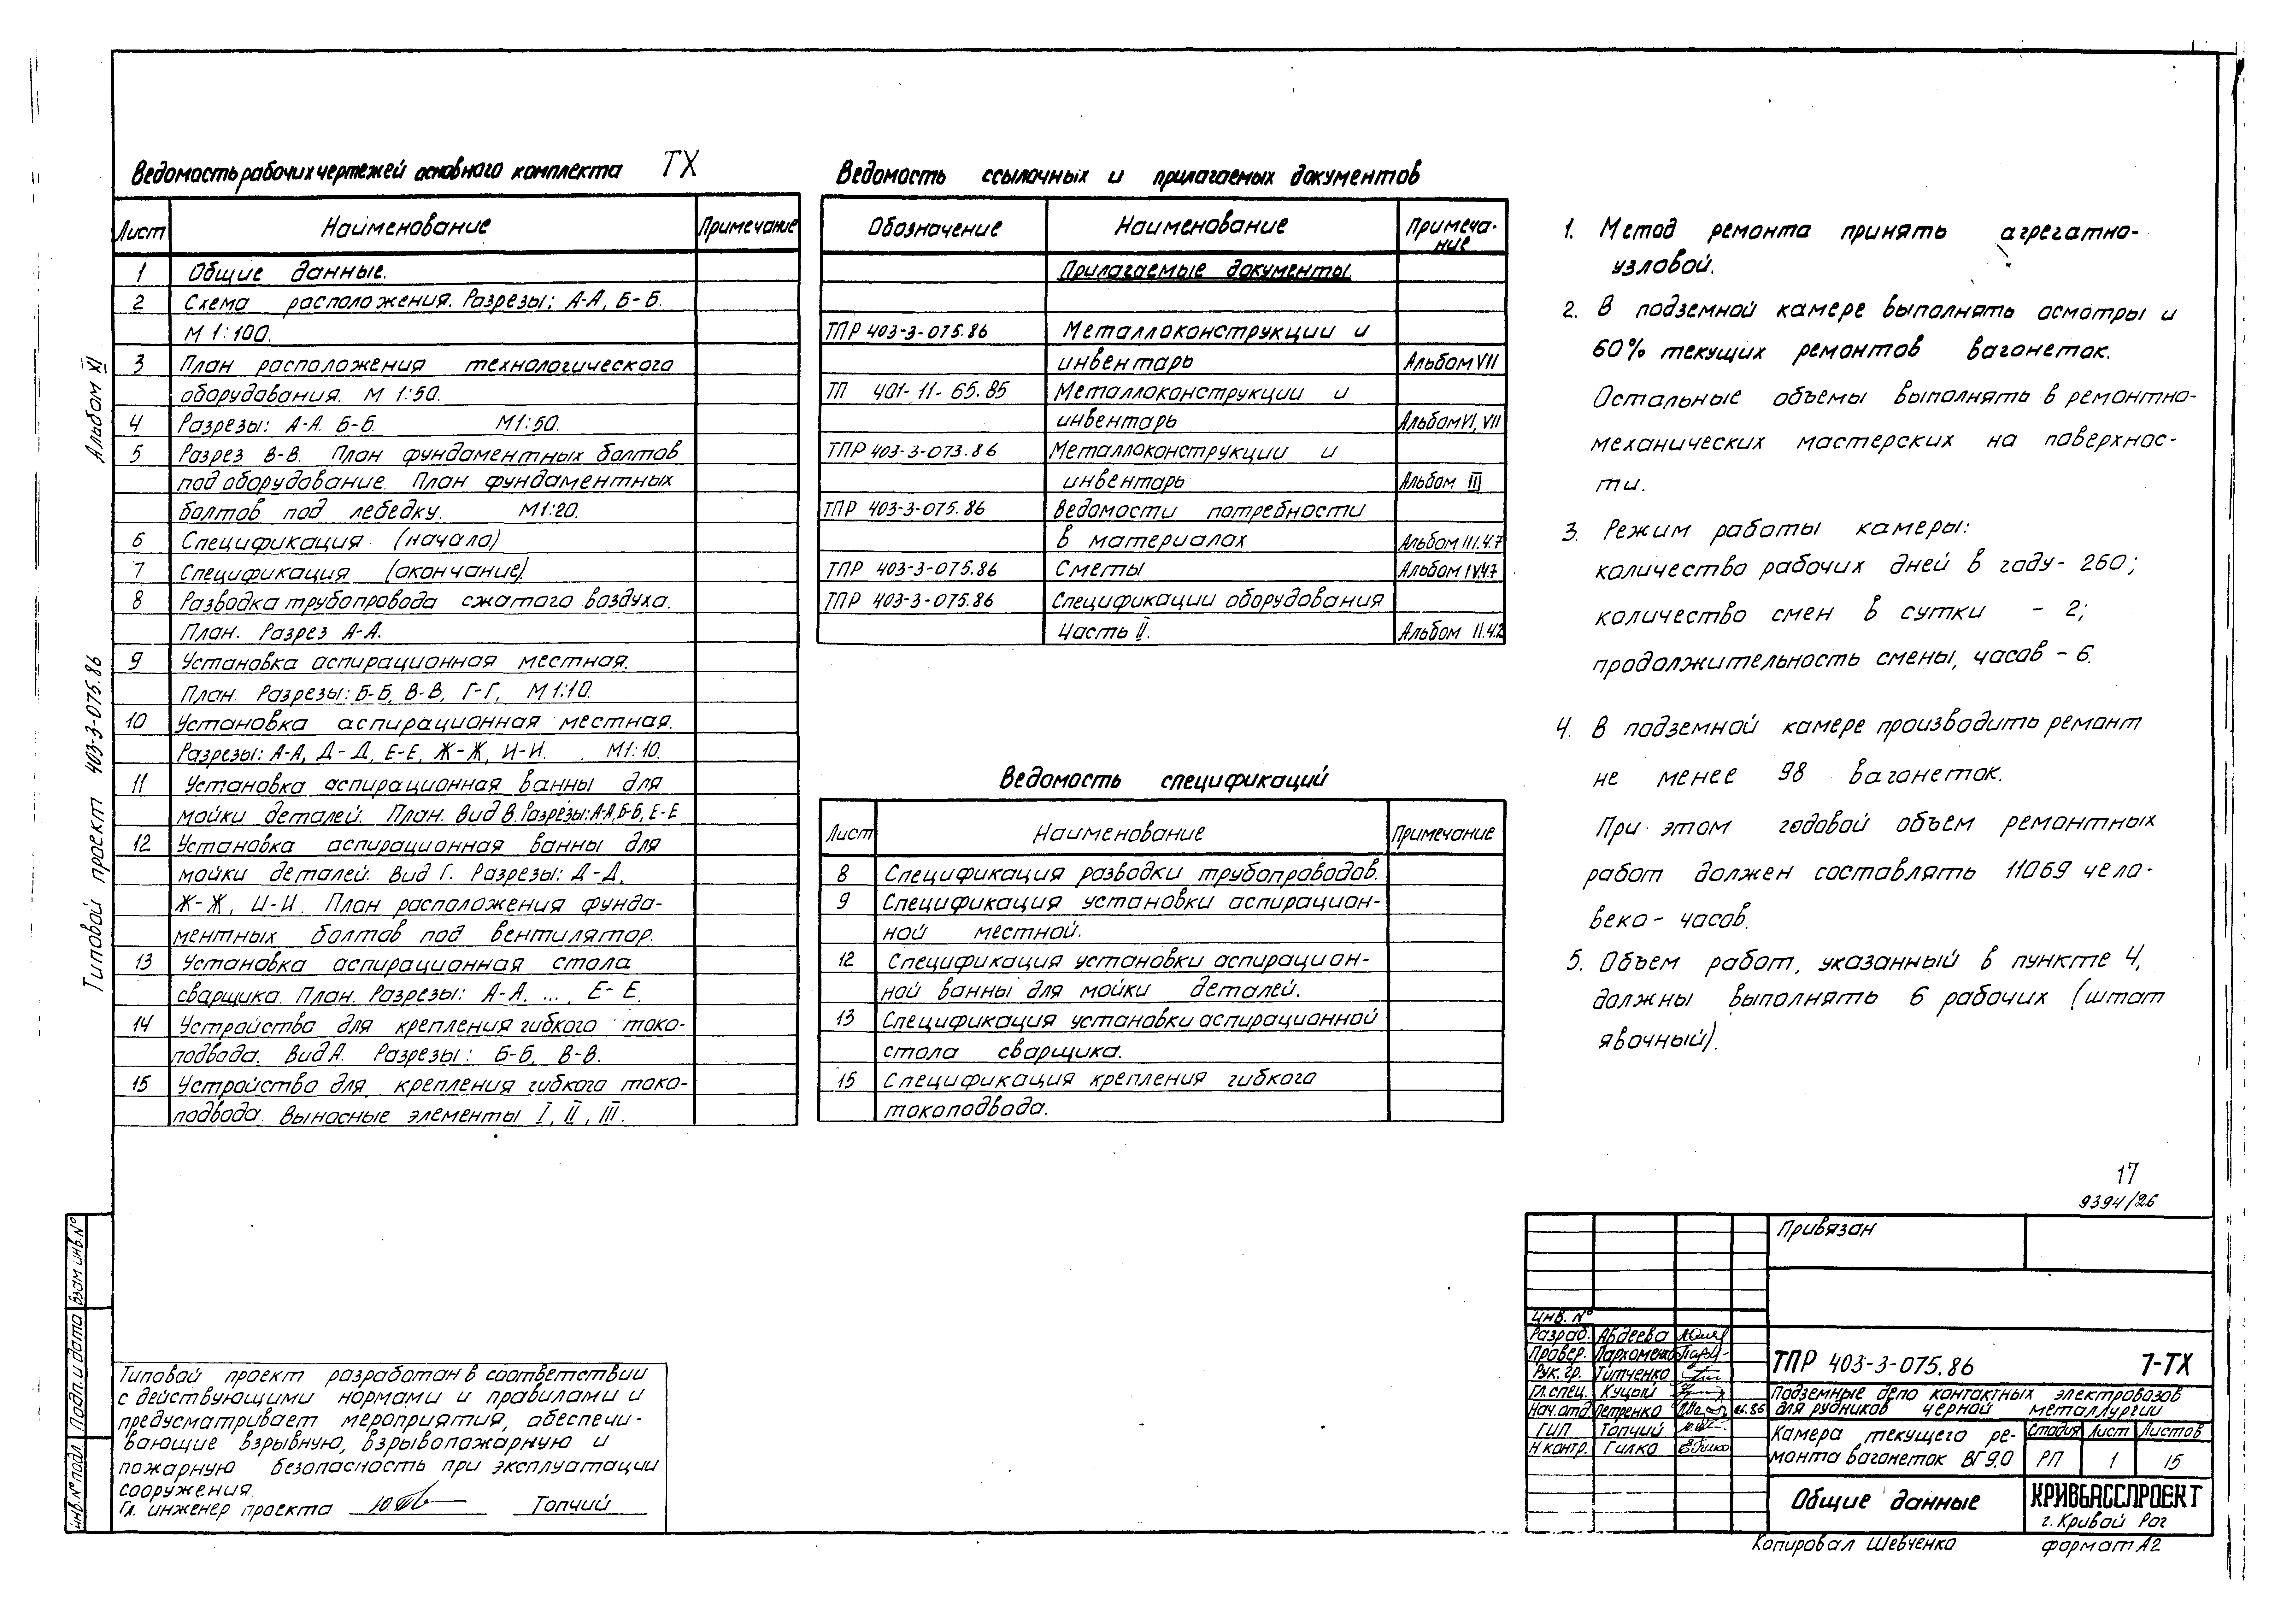 Ведомость рабочих чертежей основного комплекта ТХ
Лист Наименование Примечание
1 Общие данные.
2 Схема расположения. Разрезы: А-А, Б-Б.
М 1:100.
3 План расположения технологического
оборудования. М 1:50.
4 Разрезы: А-А. Б-Б. М1:50.
5 Разрез В-В. План фундаментных болтов
под оборудование. План фундаментных
болтов под лебедку. М1:20.
6 Спецификация (начало)
7 Спецификация (окончание)
8 Разводка трубопровода сжатого воздуха.
План. Разрез А-А.
9 Установка аспирационная местная.
План. Разрезы: Б-Б, В-В, Г-Г, М 1:10.
10 Установка аспирационная местная.
Разрезы: А-А, Д-Д, Е-Е, Ж-Ж, И-И. М1:10.
11 Установка аспирационная ванны для
мойки деталей. План. Вид В. Разрезы: А-А, Б-Б, Е-Е
12 Установка аспирационная ванны для
мойки деталей. Вид Г. Разрезы: Д-Д,
Ж-Ж, И-И. План расположения фунда-
ментных болтов под вентилятор.
13 Установка аспирационная стола
сварщика. План. Разрезы: А-А, ..., Е-Е.
14 Устройство для крепления гибкого токо-
подвода. Вид А. Разрезы: Б-Б, В-В.
15 Устройство для крепления гибкого токо-
подвода. Выносные элементы I, II, III.
Ведомость ссылочных и прилагаемых документов
Обозначение Наименование Примеча-
ние
Прилагаемые документы
ТПР 403-3-075.86 Металлоконструкции и
инвентарь Альбом VII
ТП 401-11-65.85 Металлоконструкции и
инвентарь Альбом VI, VII
ТПР 403-3-073.86 Металлоконструкции и
инвентарь Альбом III
ТПР 403-3-075.86 Ведомости потребности
в материалах Альбом III.4.7
ТПР 403-3-075.86 Сметы Альбом IV.4.7
ТПР 403-3-075.86 Спецификации оборудования
Часть II. Альбом II.4.2
Ведомость спецификаций
Лист Наименование Примечание
8 Спецификация разводки трубопроводов.
9 Спецификация установки аспирацион-
ной местной.
12 Спецификация установки аспирацион-
ной ванны для мойки деталей.
13 Спецификация установки аспирационной
стола сварщика.
15 Спецификация крепления гибкого
токоподвода.
1. Метод ремонта принять агрегатно-
узловой.
2. В подземной камере выполнять осмотры и
60% текущих ремонтов вагонеток.
Остальные объемы выполнять в ремонтно-
механических мастерских на поверхнос-
ти.
3. Режим работы камеры:
количество рабочих дней в году - 260;
количество смен в сутки - 2;
продолжительность смены, часов - 6.
4. В подземной камере производить ремонт
не менее 98 вагонеток.
При этом годовой объем ремонтных
работ должен составлять 11069 чело-
веко-часов.
5. Объем работ, указанный в пункте 4,
должны выполнять 6 рабочих (штат
явочный).
17
9394/26
Привязан
Инв. №
Разраб. Авдеева
Провер. Пархоменко
Рук. гр. Титченко
Гл. спец. Куцый
Нач. отд Петренко
ГИП Топчий
Н контр. Гилко
ТПР 403-3-075.86 7-ТХ
Подземные депо контактных электровозов
для рудников черной металлургии
Камера текущего ре-
монта вагонеток ВГ9,0
Стадия Лист Листов
РП 1 15
Общие данные
КРИВБАССПРОЕКТ
г. Кривой Рог
Копировал Шевченко формат А2
Типовой проект разработан в соответствии
с действующими нормами и правилами и
предусматривает мероприятия, обеспечи-
вающие взрывную, взрывопожарную и
пожарную безопасность при эксплуатации
сооружения.
Гл. инженер проекта Топчий
Типовой проект 403-3-075.86 Альбом XI
Инв. № подл. Подп. и дата Взам. инв. №